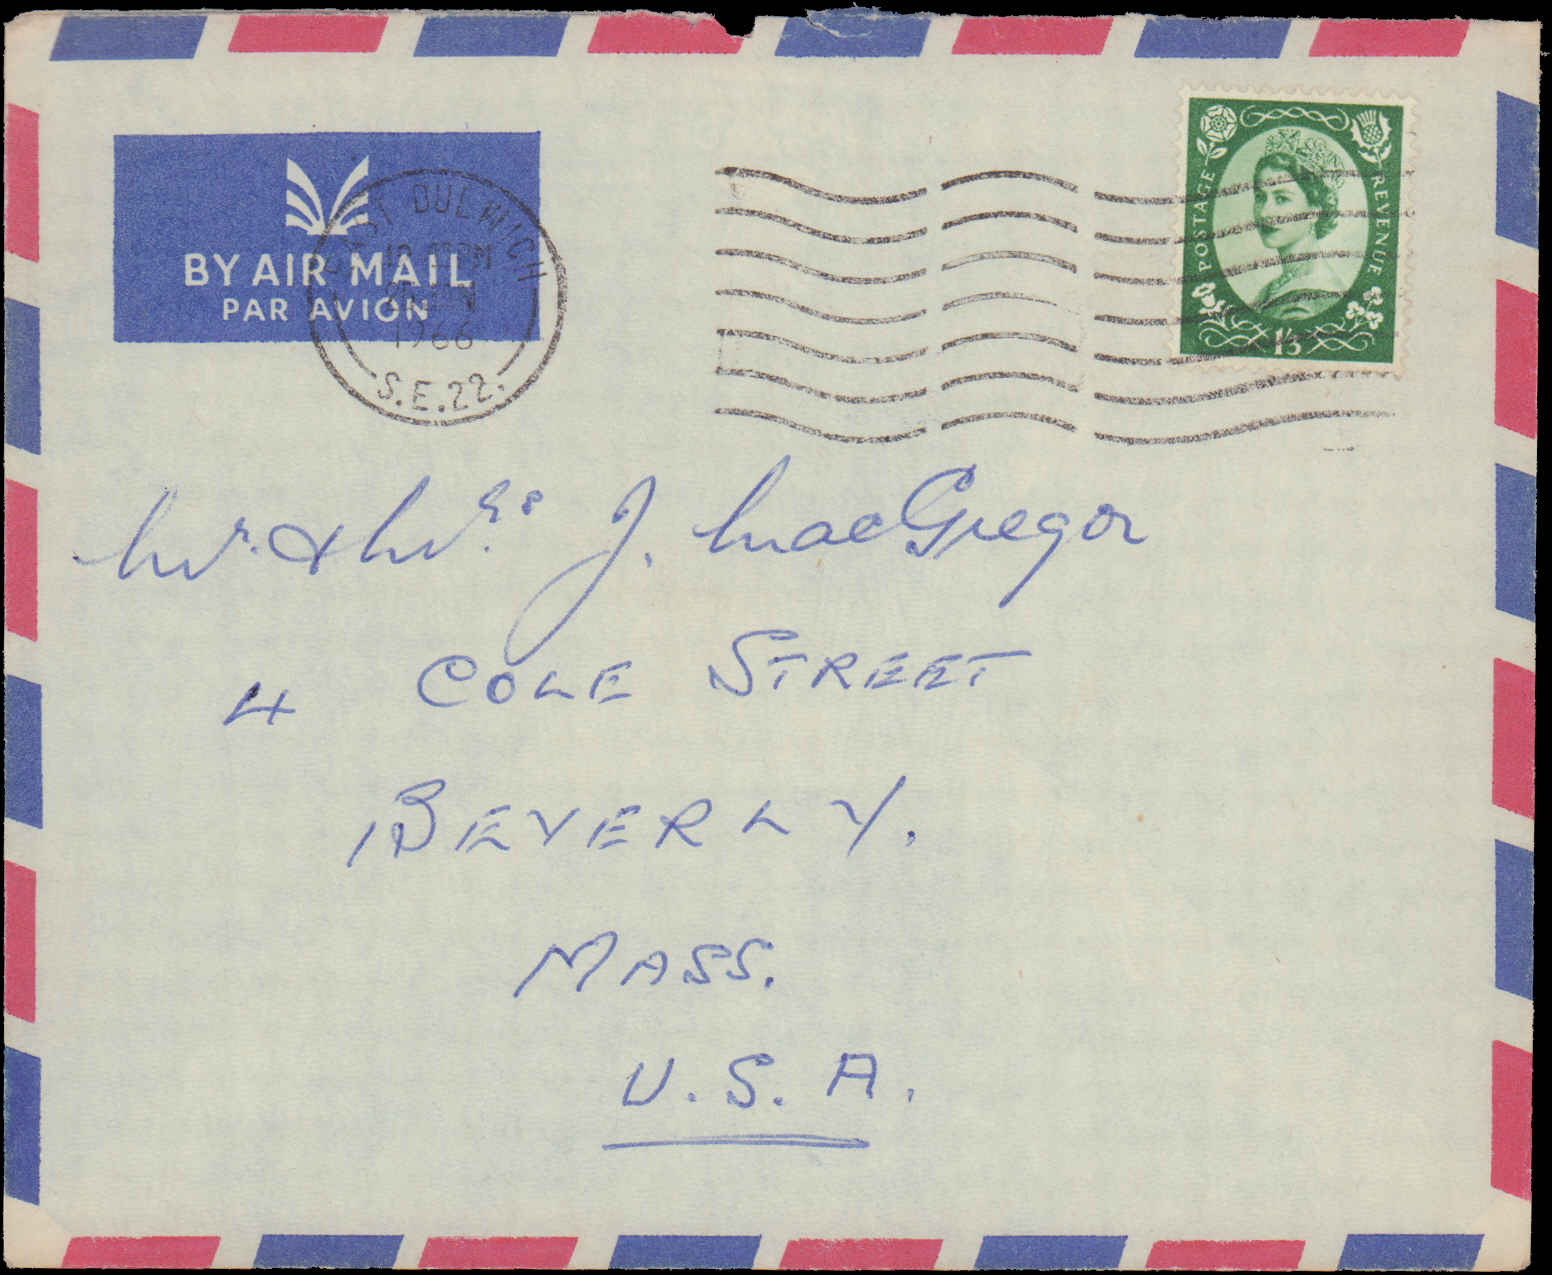 BY AIR MAIL
PAR AVION
EAST DULWICH
1966
S.E.22.
POSTAGE REVENUE
1/3
Mr. & Mrs. J. MacGregor
4 COLE STREET
BEVERLY.
MASS.
U.S.A.